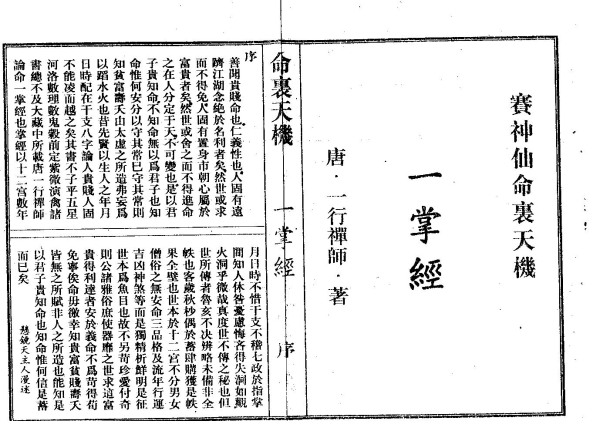 賽神仙命裏天機
一掌經
唐·一行禪師·著
命裏天機 一掌經 序
序
善聞貴賤命也仁義性也人固有遠
躋江湖念絶於名利者矣然世或求
而不得免人固有置身市朝心屬於
富貴者矣然世或舍之而不得進命
之在人分定于天不可變也是以君
子貴知命不知命無以爲君子也知
命惟何安分以守其常巳守其常則
知貧富壽夭山太虛之所造弗妄爲
以蹈水火也昔先賢以生人之年月
日時配在干支八字論人貴賤人固
不能凌而越之矣其書不子平五星
河洛數理數鬼穀前定紫微演禽諸
書總不及大藏中所載唐一行禪師
論命一掌經也掌經以十二宮數年
月日時不惜干支不稽七政於指掌
間知人休咎憂慮悔吝得失洞如觀
火洞乎微哉真度世不傳之秘也但
世所傳者魯亥不决辨略未備非全
帙也客歲秋杪偶於蓄肆購獲是帙
果全壁也世本於十二宮不分男女
僧俗之無安命三品格及流年行運
吉凶神煞等而是獨精析鮮明是征
世本爲魚目也故不另苛珍愛付奇
則公諸雅俗庶使器靡之世求這富
貴得利達者安於義命不爲苟得苟
免事俟命毋徼幸知貴富貧賤壽夭
皆無之所賦非人之所造也能知是
以君子貴知命也知命惟何信是蓄
而已矣
慧鏡天主人漫述